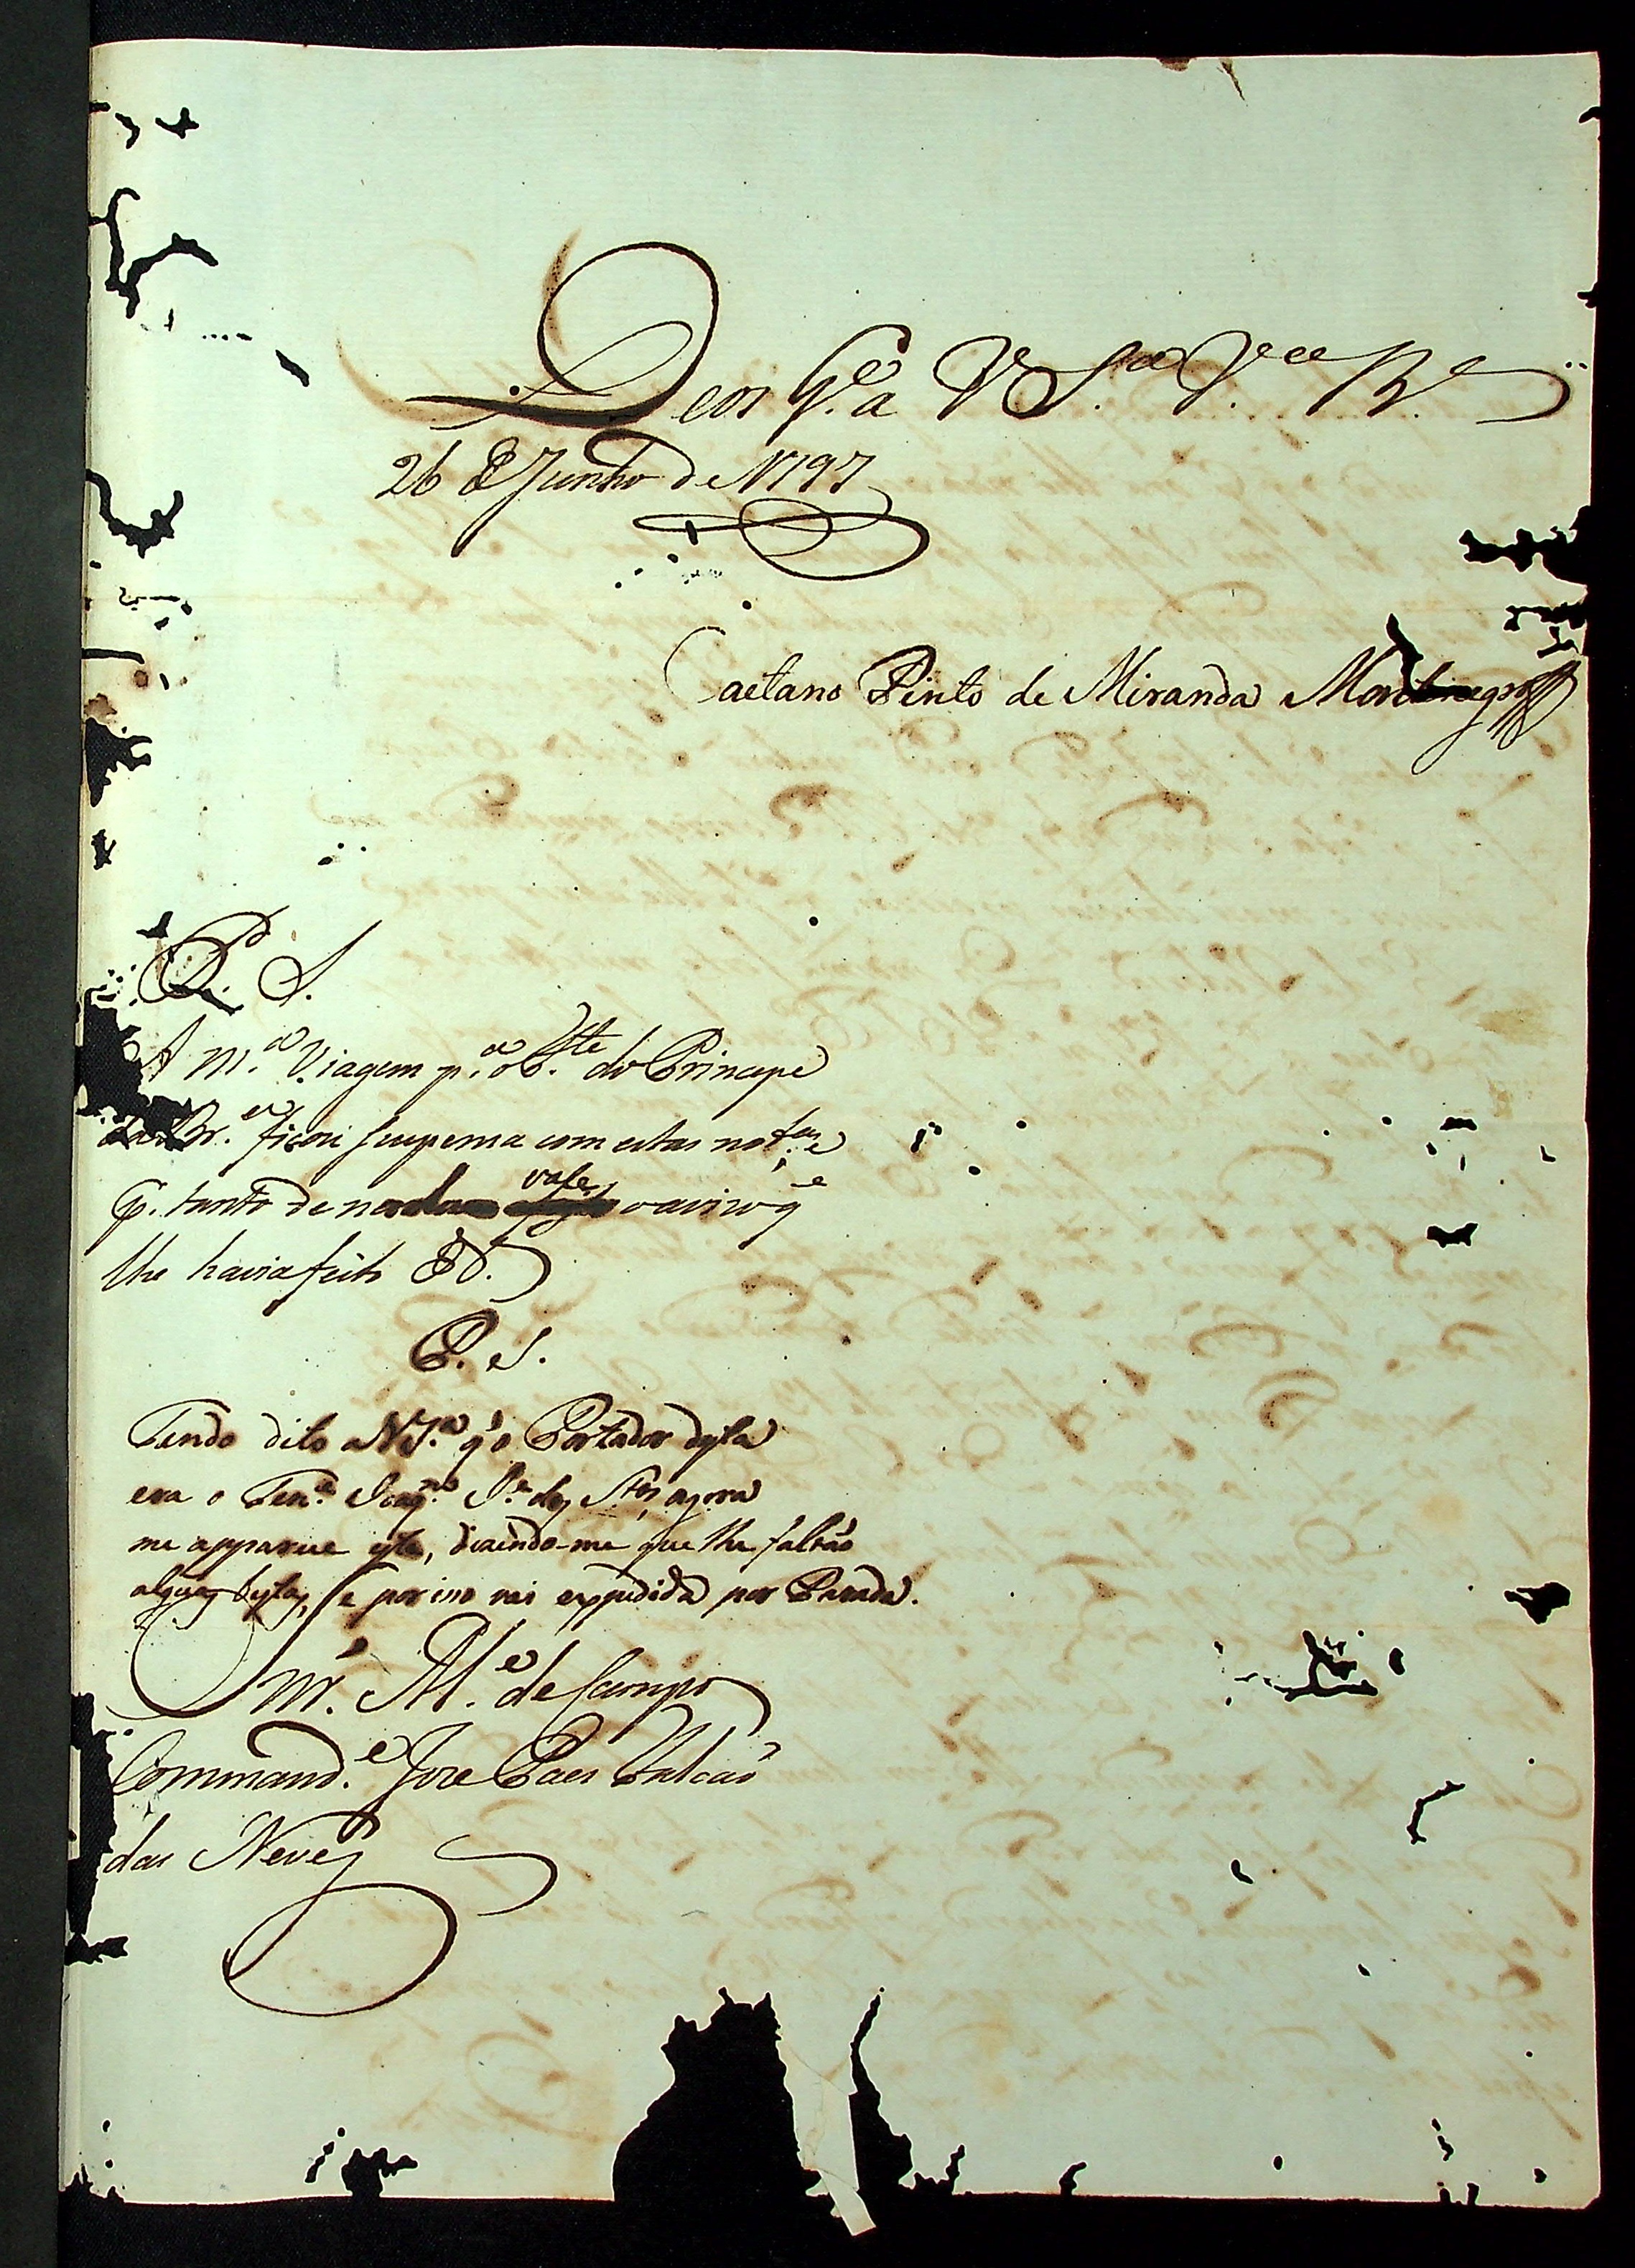 Deos g.e a V S.a V.a B.a
26 de Junho de 1797
Caetano Pinto de Miranda Montenegro
P. S.
A m.a Viagem p.a o F.te do Principe
da Br.a ficou suspensa com estas not.as e
p. tanto de nada vale o aviso q̃
lhe havia feito &.
P. S.
Tendo dito a V S.a q̃ o Portador desta
era o Ten.e Joaq.m J.e dos S.tos, agora
me apparece este, dizendo-me que lhe faltão
algũas bestas, e por isso vai expedida por Parada.
Snr. M.e de Campo
Command.e Joze Paes Falcaõ
das Neves